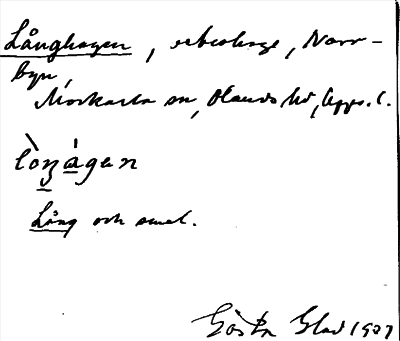 Långhagen, urbeteshage, Norr-
byn,
Morkarla sn, Olands hd, Upps. l.
lòŋágen
Lång och smal.
Gösta Glad 1927